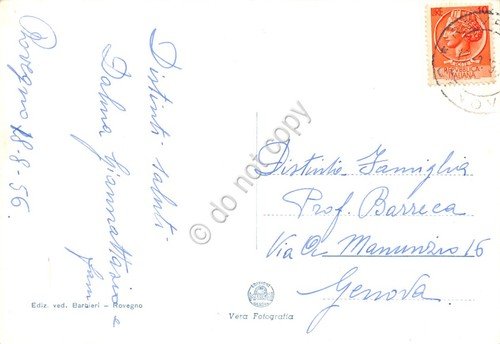 Rovegno 18-8-56.
Distinti saluti -
Dalma Giannattasio e
fam
Distinta Famiglia
Prof. Barreca
Via A. Manunzio 16
Genova
Ediz. ved. Barbieri - Rovegno
Vera Fotografia
© do not copy
10